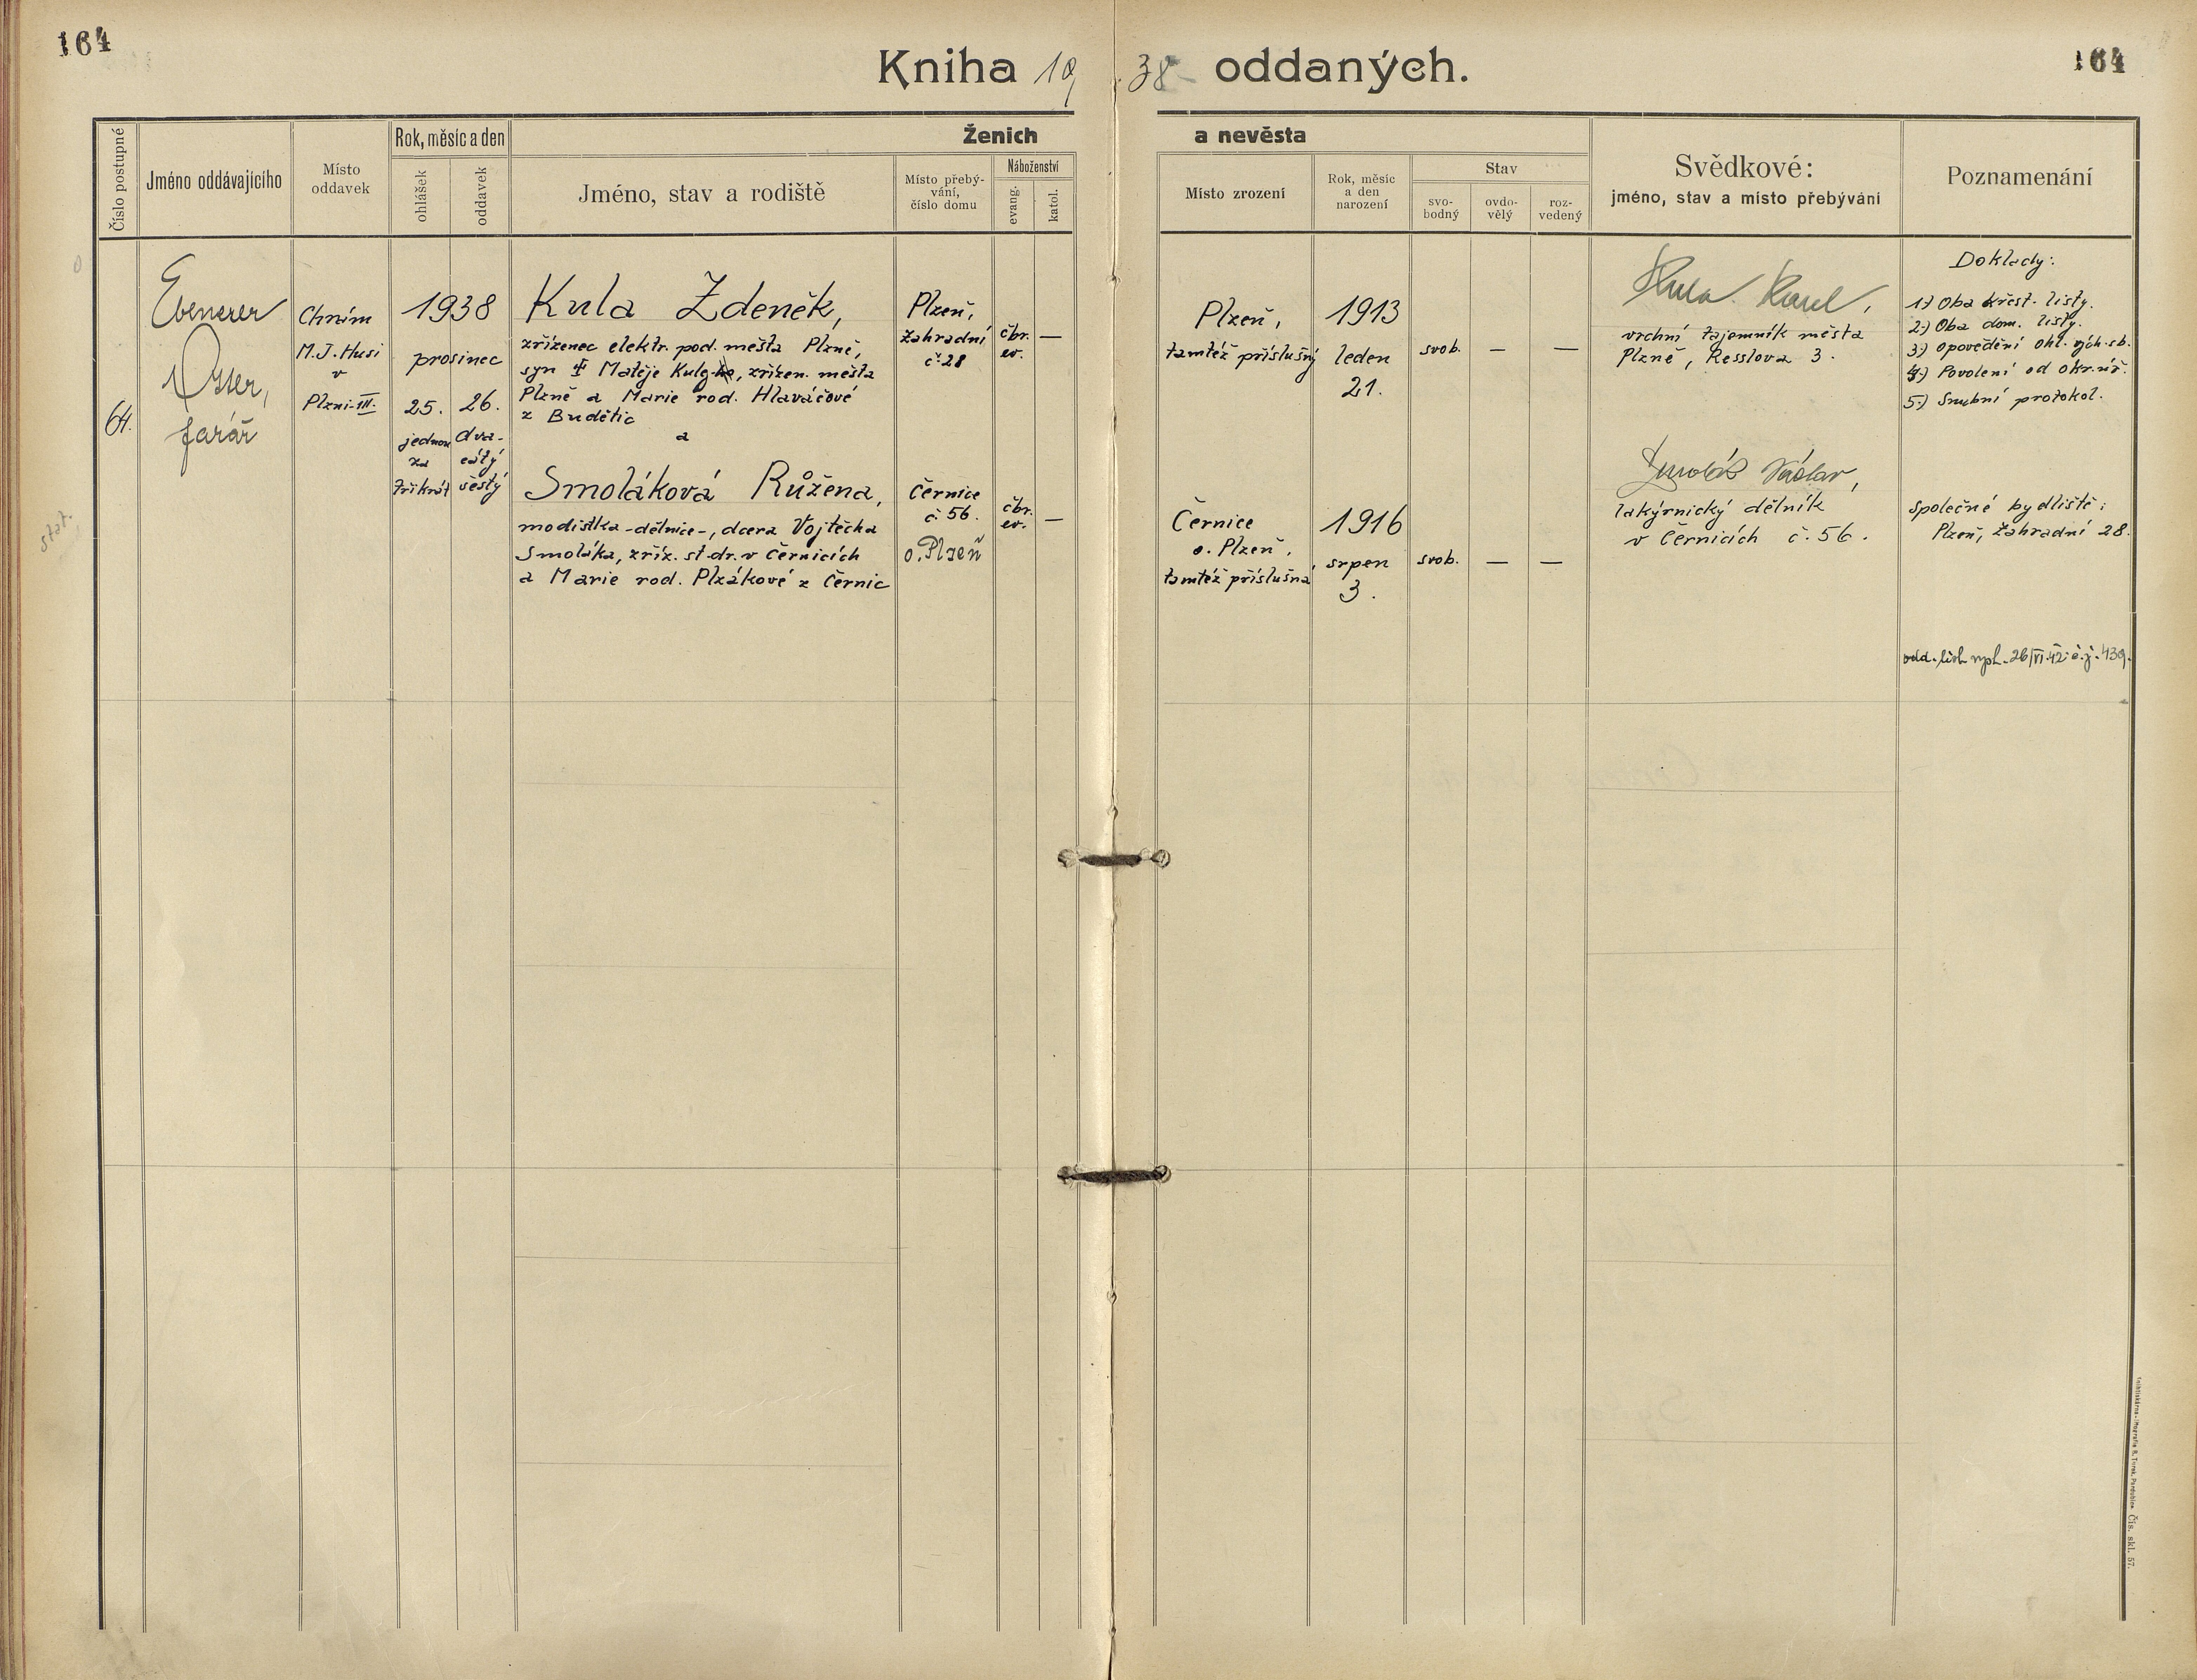 164
Kniha 19 38 oddaných.
164
Číslo postupné
Jméno oddávajícího
Místo oddavek
Rok, měsíc a den
ohlášek
oddavek
Ženich
a nevěsta
Jméno, stav a rodiště
Místo přebý-
vání,
číslo domu
Náboženství
evang.
katol.
Místo zrození
Rok, měsíc
a den
narození
Stav
svo-
bodný
ovdo-
vělý
roz-
vedený
Svědkové:
jméno, stav a místo přebývání
Poznamenání
64.
Ebenezer
Otter,
farář
Chrám
M.J. Husi
v
Plzni-III.
1938
prosinec
25.
jednou
za
třikrát
26.
dva-
cátý
šestý
Kula Zdeněk,
zřízenec elektr. pod. města Plzně,
syn Matěje Kuly, zřízen. města
Plzně a Marie rod. Hlaváčové
z Budětic
a
Smoláková Růžena,
modistka -dělnice-, dcera Vojtěcha
Smoláka, zříz. st. dr. v Černicích
a Marie rod. Plzákové z Černic
Plzeň,
Zahradní
č. 28
čbr.
ev.
—
Černice
č. 56.
o. Plzeň
čbr.
ev.
—
Plzeň,
tamtéž příslušný
1913
leden
21.
svob.
—
—
Černice
o. Plzeň,
tamtéž příslušná
1916
srpen
3.
svob.
—
—
Kula Karel,
vrchní tajemník města
Plzně, Resslova 3.
Smolák Václav,
lakýrnický dělník
v Černicích č. 56.
Doklady:
1.) Oba křest. listy.
2.) Oba dom. listy.
3.) Opovědění ohl. vých. sb.
4.) Povolení od okr. úř.
5.) Snubní protokol.
společné bydliště:
Plzeň, Zahradní 28.
odd. list vyh. 26/VI. 42 č.j. 439.
stat.
Čís. skl. 57.